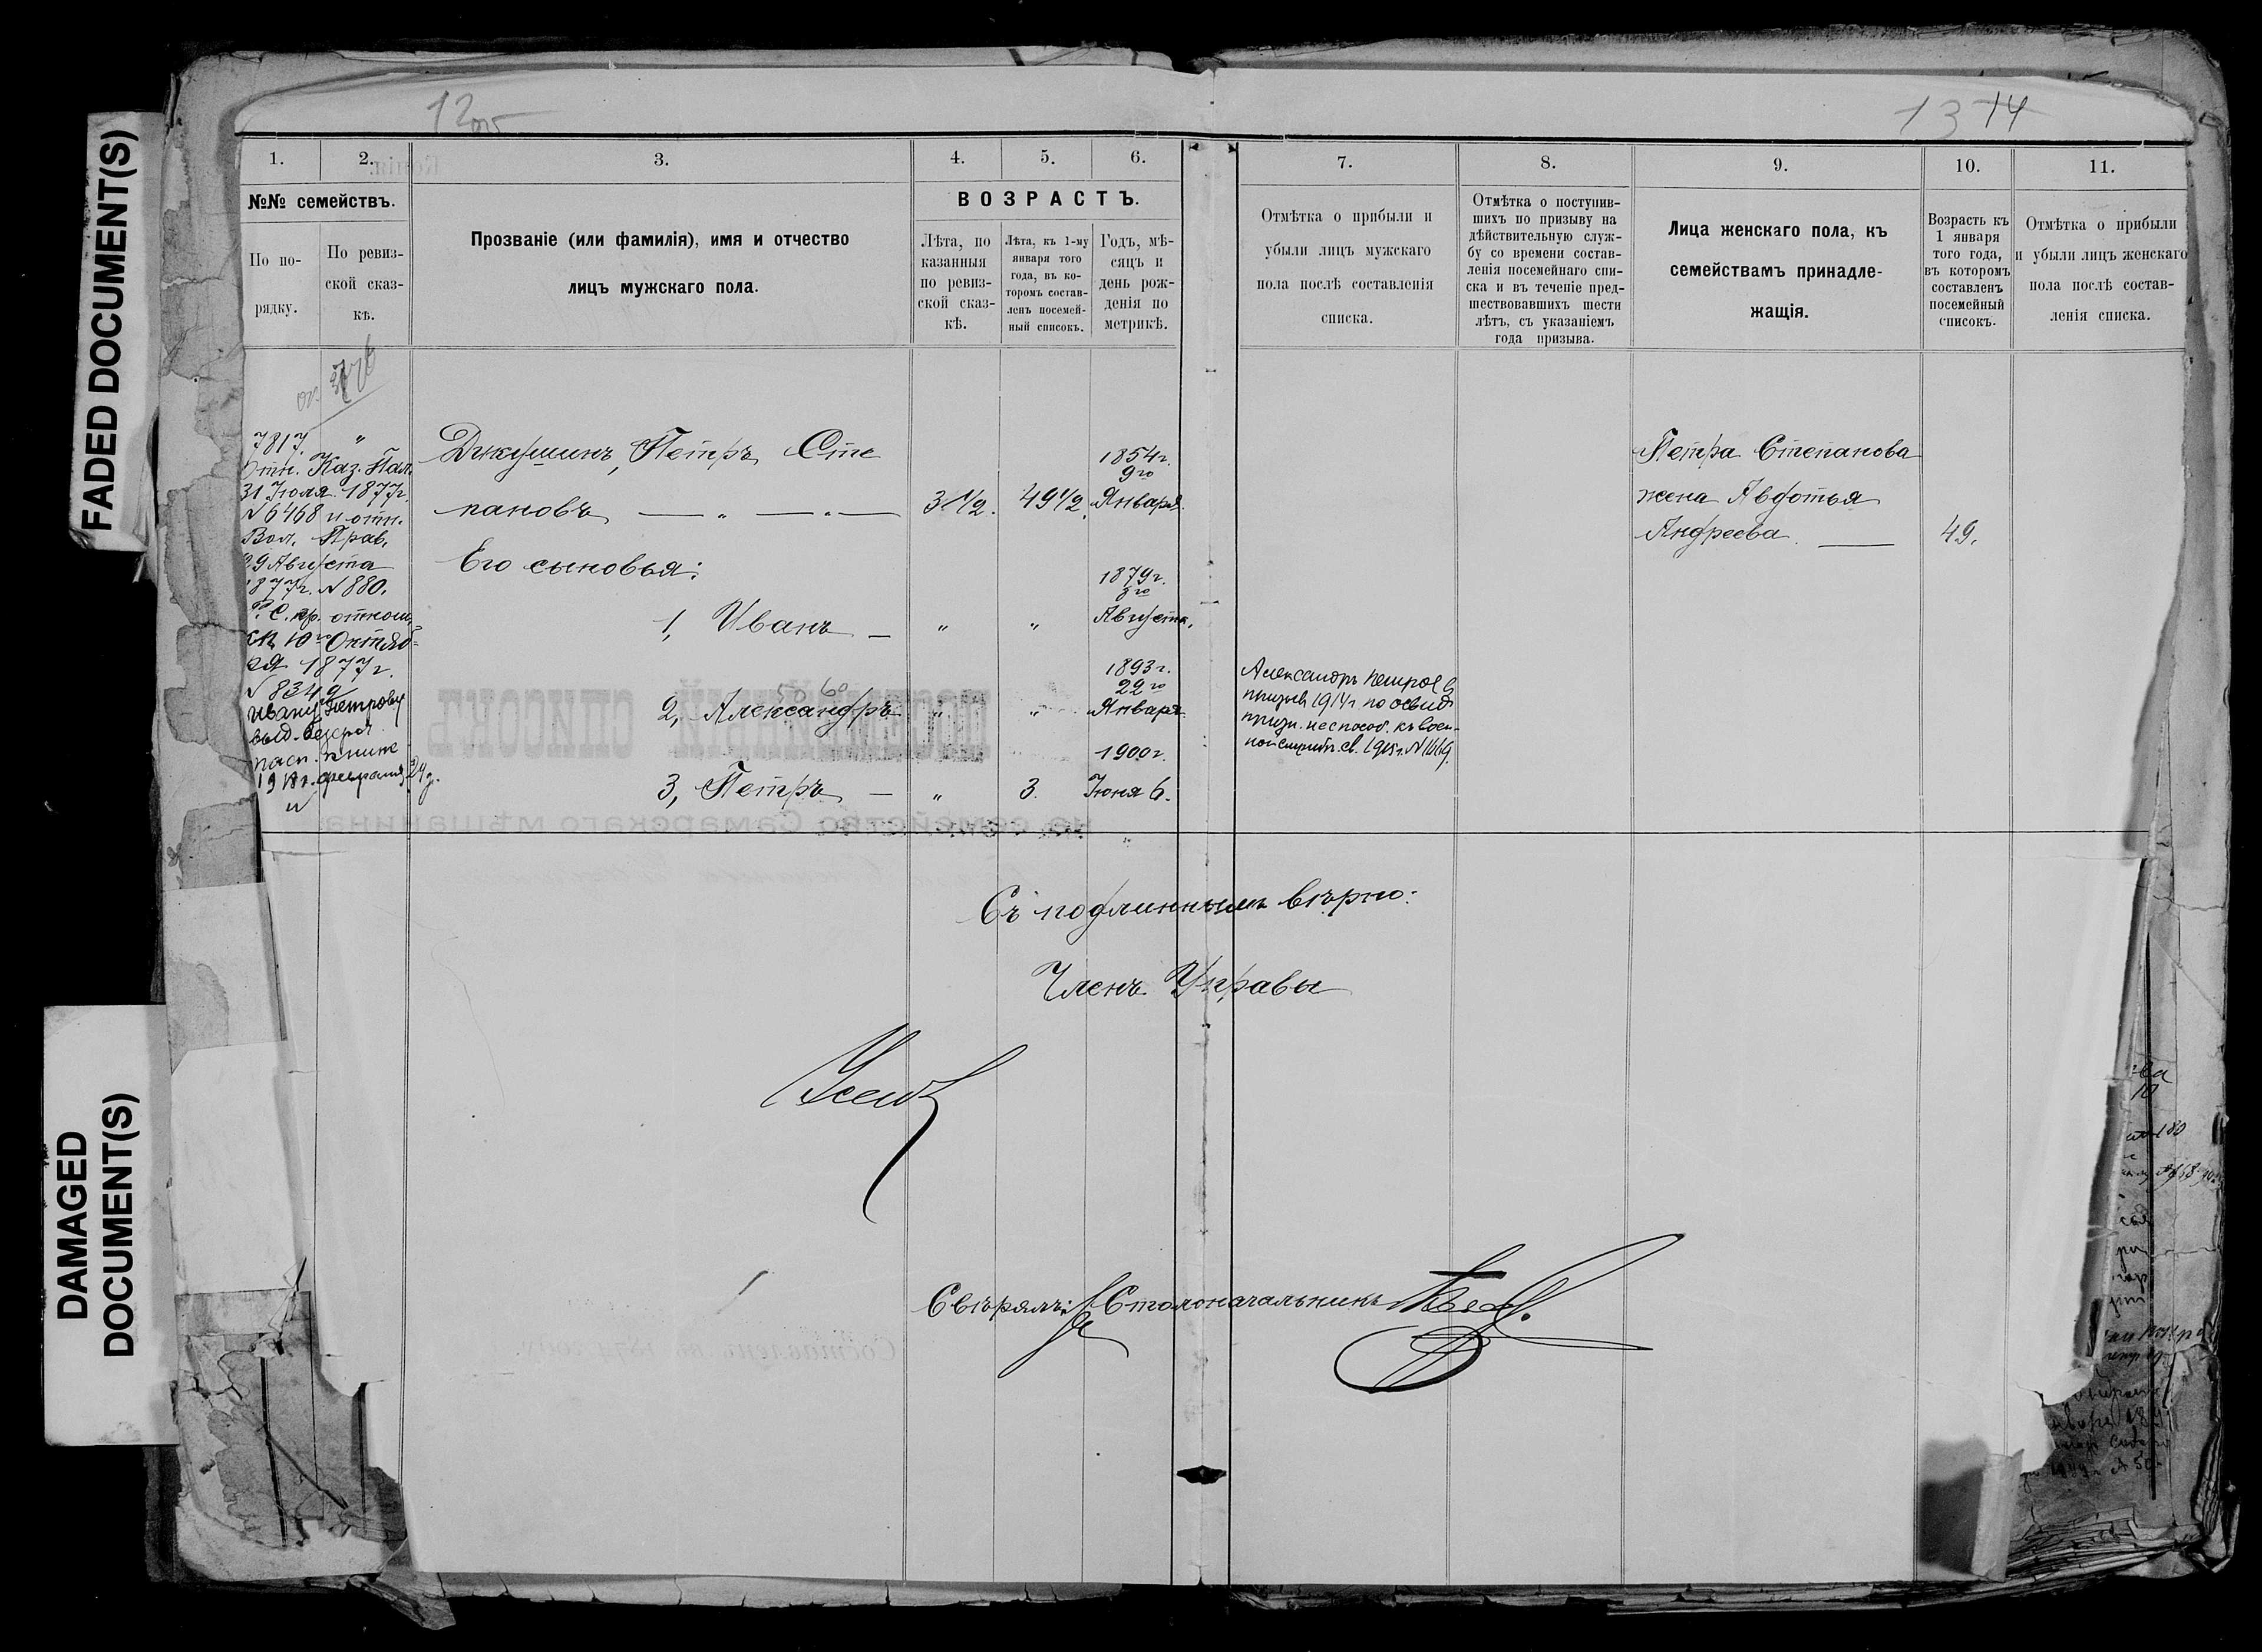 FADED DOCUMENT(S)
DAMAGED
DOCUMENT(S)
12об
13 14
1.
2.
3.
4.
5.
6.
7.
8.
9.
10.
11.
№№ семействъ.
По по-
рядку.
По ревиз-
ской сказ-
кѣ.
Прозваніе (или фамилія), имя и отчество
лицъ мужскаго пола.
ВОЗРАСТЪ.
Лѣта, по
казанныя
по ревиз-
ской сказ-
кѣ.
Лѣта, къ 1-му
января того
года, въ ко-
торомъ состав-
ленъ посемей-
ный списокъ.
Годъ, мѣ-
сяцъ и
день рож-
денія по
метрикѣ.
Отмѣтка о прибыли и
убыли лицъ мужскаго
пола послѣ составленія
списка.
Отмѣтка о поступив-
шихъ по призыву на
дѣйствительную служ-
бу со времени состав-
ленія посемейнаго спи-
ска и въ теченіе пред-
шествовавшихъ шести
лѣтъ, съ указаніемъ
года призыва.
Лица женскаго пола, къ
семействамъ принадле-
жащія.
Возрастъ къ
1 января
того года,
въ которомъ
составленъ
посемейный
списокъ.
Отмѣтка о прибыли
и убыли лицъ женскаго
пола послѣ состав-
ленія списка.
7817. "
Отн. Каз. Пал.
31 Іюля 1877г.
№ 6468 и отн.
Вол. Прав.
29 Августа
1877г. № 880.
Р. С. пр. отнош.
съ 10го Октяб=
ря 1877г.
№ 8349
Ивану Петрову
выд. безсроч.
пасп. книж
февраля 24 д.
Джушинъ, Петръ Сте
пановъ — " — " —
3 1/2.
49 1/2.
1854г.
9го
Января.
Его сыновья:
1, Иванъ —
"
"
1879г.
Августа.
50 60
2, Александръ
"
"
1893г.
22го
Января
3, Петръ —
"
3.
1900г.
Іюня 6.
Александръ Петров
призыв 1914г по освид
призн. неспособ. къ воен-
ной служб. св. 1915г. № 1669.
Петра Степанова
жена Авдотья
Андреева. —
49.
Съ подлиннымъ вѣрно:
Членъ Управы
Свѣрялъ: Столоначальникъ